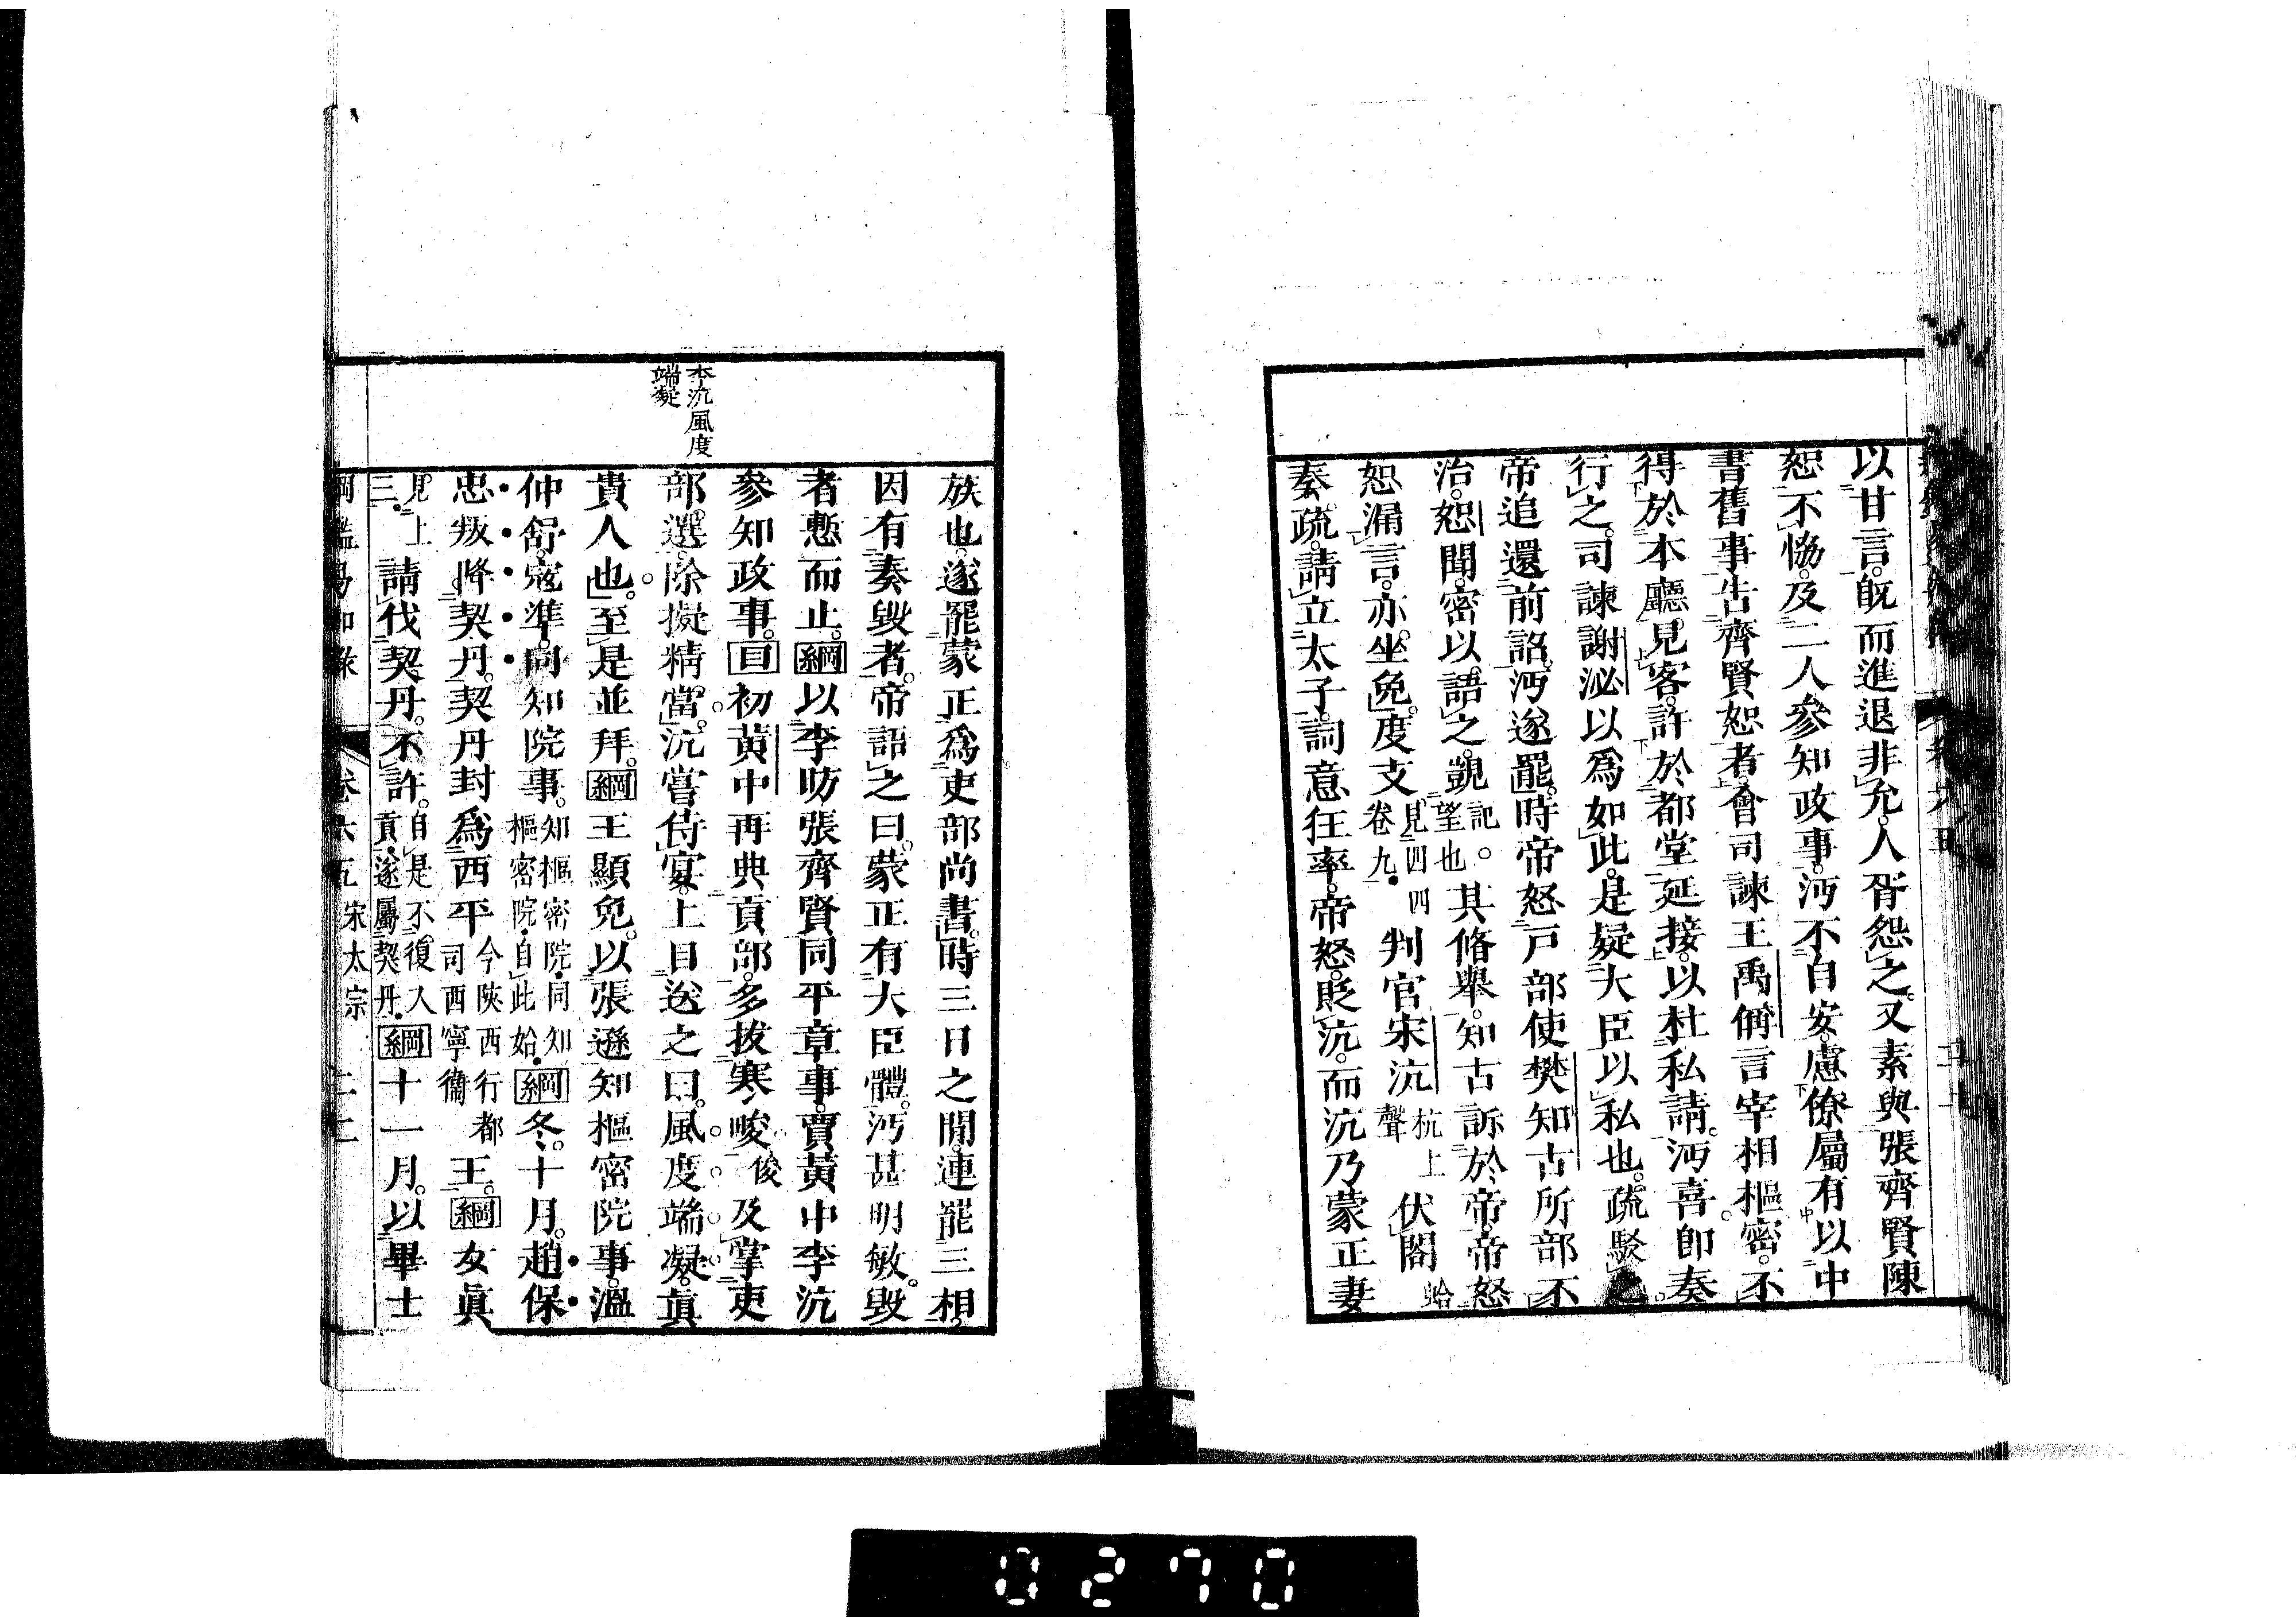 以甘言。既而進退非允。人胥怨之。又素與張齊賢陳
恕不恊。及二人參知政事。沔不自安。慮僚屬有以中
書舊事告齊賢恕者。會司諫王禹偁言宰相樞密。不
得於本廳見客。許於都堂延接。以杜私請。沔喜即奏
行之。司諫謝泌以爲如此。是疑大臣以私也。疏駁
帝追還前詔。沔遂罷。時帝怒戸部使樊知古所部不
治。恕聞。密以語之。覬記。望也其脩舉。知古訴於帝。帝怒
恕漏言。亦坐免。度支見四四卷九判官宋沆杭上聲伏閤蛤
奏疏。請立太子。詞意狂率。帝怒。貶沆。而沆乃蒙正妻
族也。遂罷蒙正爲吏部尚書。時三日之閒。連罷三相。
因有奏毀者。帝語之曰。蒙正有大臣體。沔甚明敏。毀
者慙而止。綱以李昉張齊賢同平章事。賈黄中李沆
參知政事。目初黄中再典貢部。多拔寒畯俊及掌吏
部。選除擬精當。沆嘗侍宴。上目送之曰。風度端凝。眞
貴人也。至是並拜。綱王顯免。以張遜知樞密院事。溫
仲舒。寇準。同知院事。知樞密院。同知樞密院。自此始。綱冬。十月。趙保
忠叛降契丹。契丹封爲西平今陝西行都司西寧衞王。綱女眞
見上三請伐契丹。不許。自是不復入貢。遂屬契丹。綱十一月。以畢士
李沆風度
端凝
卷六五 宋太宗
0270